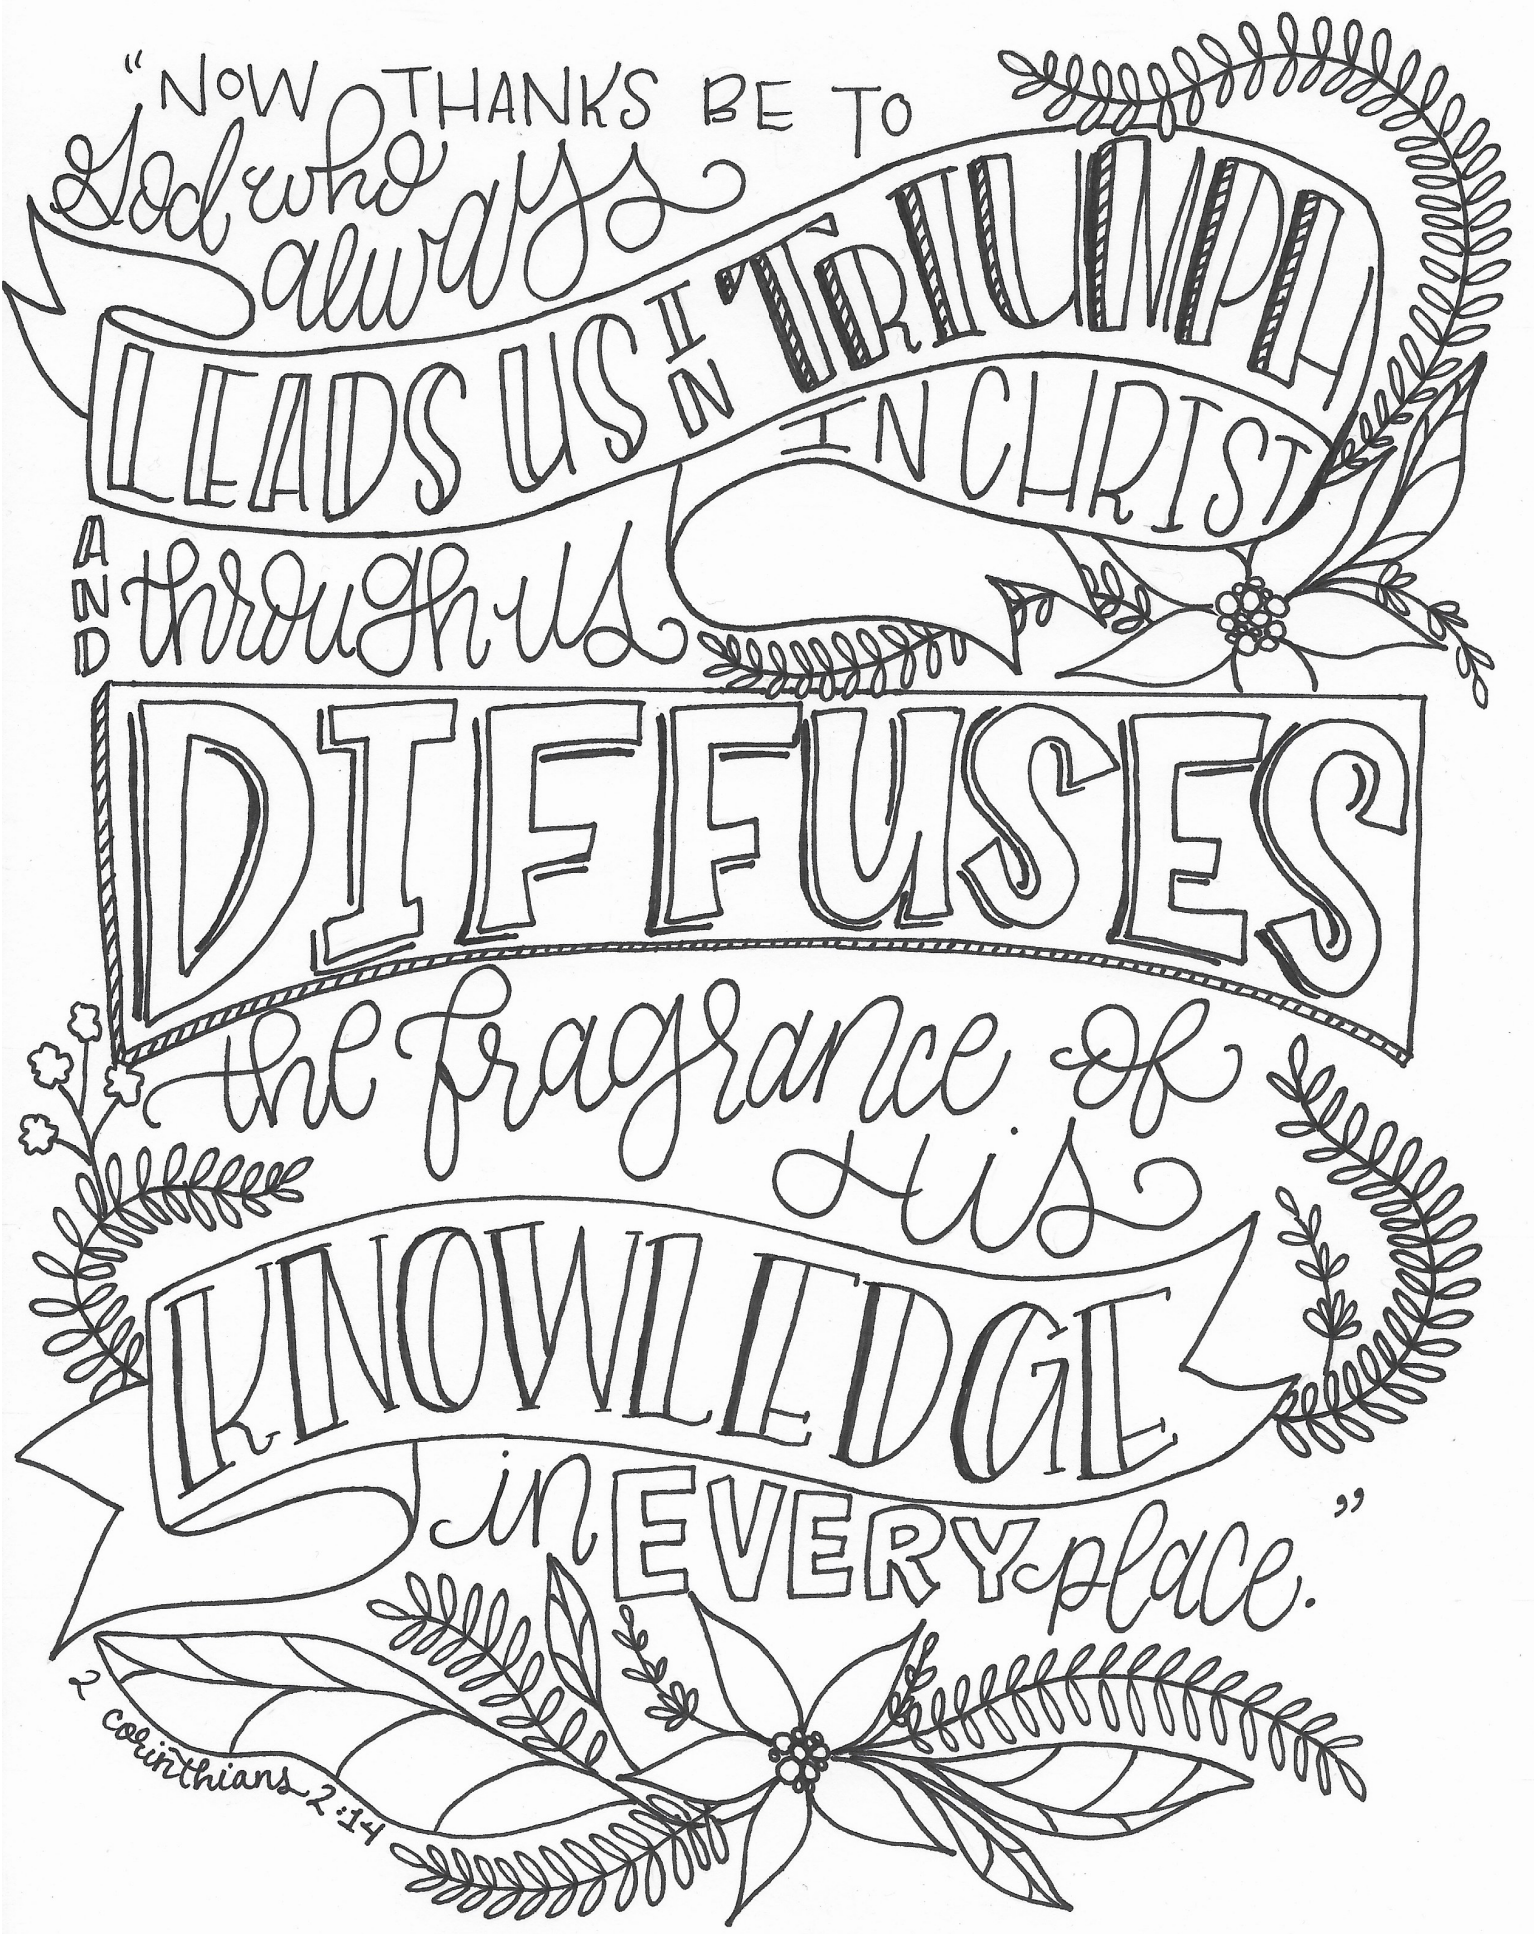 "NOW THANKS BE TO
God who
always
LEADS US IN TRIUMPH
IN CHRIST
AND through us
DIFFUSES
the fragrance of
His
KNOWLEDGE
in EVERY place."
2 corinthians 2:14